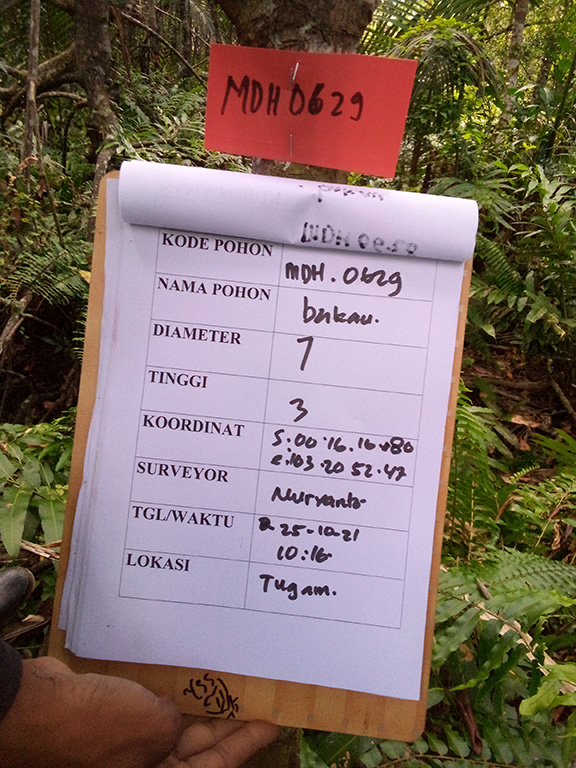 MDH 0629
KODE POHON MDH. 0629
NAMA POHON bakau.
DIAMETER 7
TINGGI 3
KOORDINAT S.00.16.16.80
e.103.20 52.47
SURVEYOR Nuryanto
TGL/WAKTU 25-10-21
10:16
LOKASI Tugam.